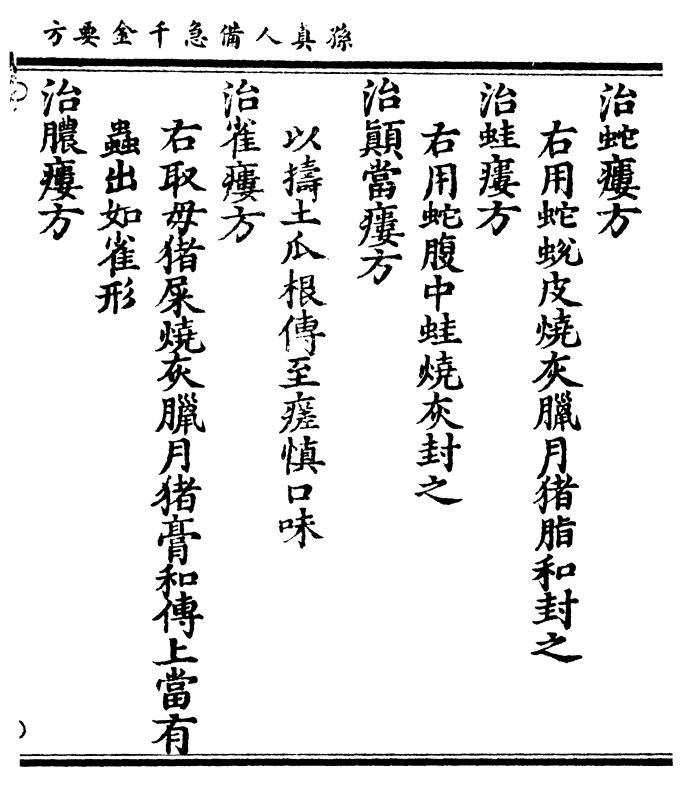 孫真人備急千金要方
治蛇瘻方
右用蛇蛻皮燒灰臘月猪脂和封之
治蛙瘻方
右用蛇腹中蛙燒灰封之
治顚當瘻方
以擣土瓜根傅至瘥慎口味
治雀瘻方
右取母猪屎燒灰臘月猪膏和傅上當有
蟲出如雀形
治膿瘻方